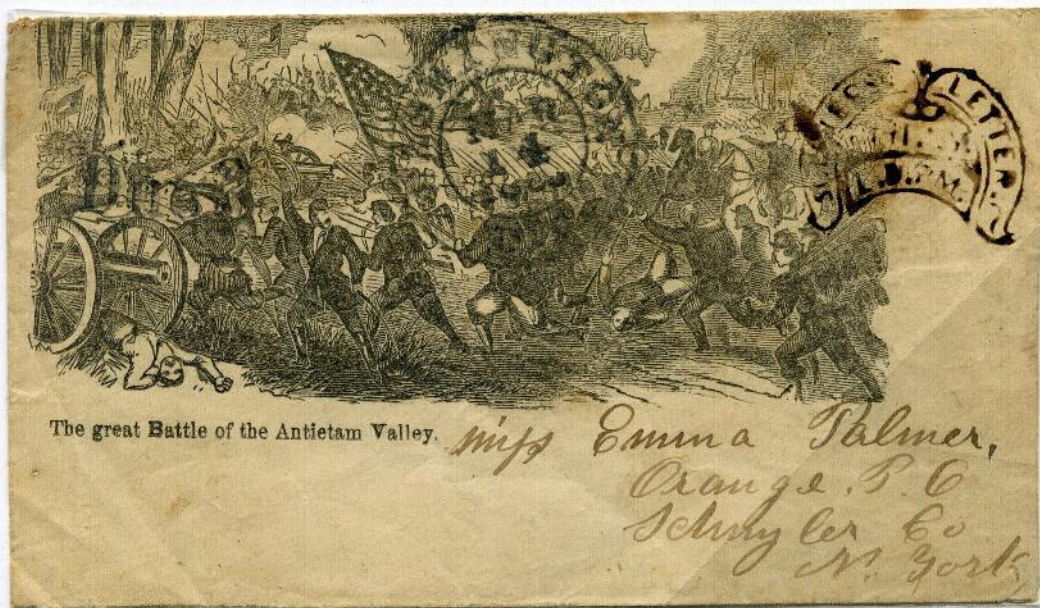 LETTER
P.M.
The great Battle of the Antietam Valley.
Miss Emma Palmer,
Orange P. O
Schuyler Co
N. York